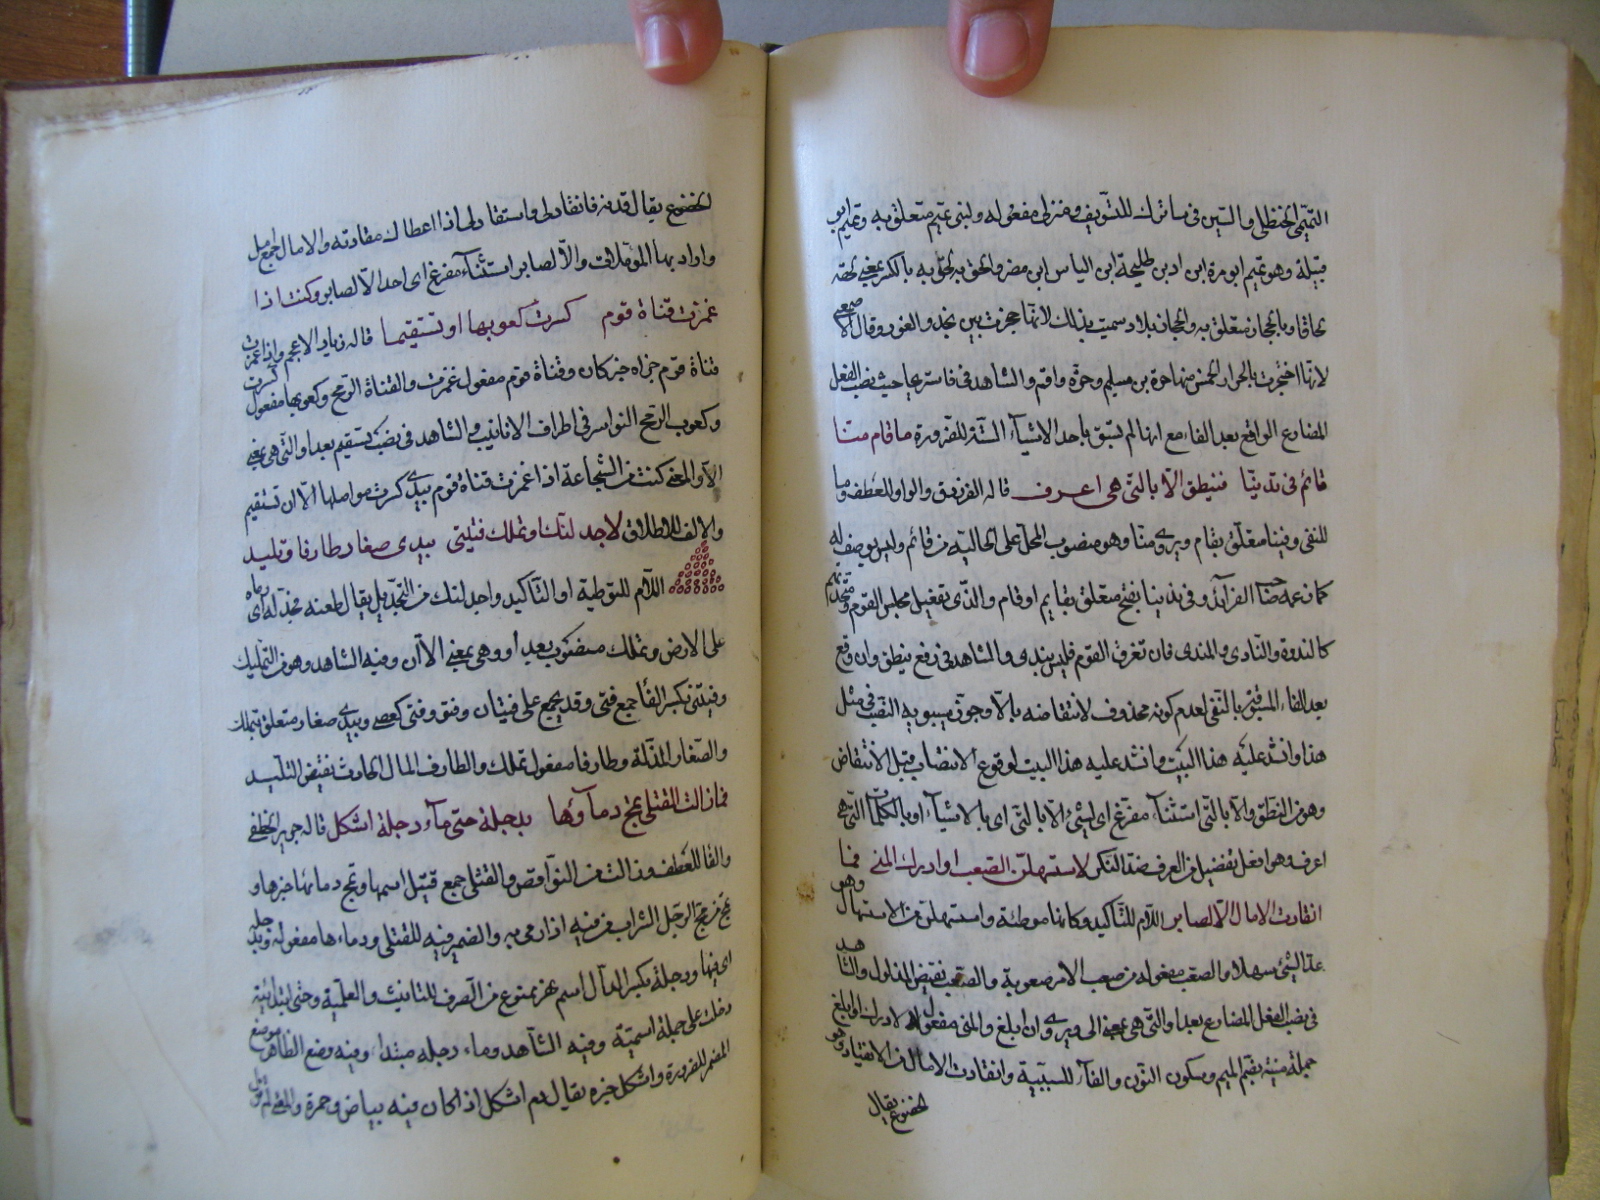 التميمي الحنظلي والسين في سأترك للتسويف ومنزلي مفعوله ولبني تميم متعلق به وتميم ابو
قبيلة وهو تميم ابو مرة ابن اد بن طابخة ابن الياس ابن مضر والحق به بالكسر بمعنى لحقه
لحاقا وبالحجاز متعلق به والحجاز بلاد سميت بذلك لانها حجزت بين نجد والغور وقال الاصمعي
لانها احتجزت بالحرار الخمس منها حرة بن سليم وحرة واقم والشاهد في فاستريحا حيث نصب الفعل
المضارع الواقع بعد الفاء مع انها لم تسبق باحد الاشياء الستة للضرورة ما قام منا
قائم في ندينا فينطق الا بالتي هي اعرف قاله الفرزدق والواو للعطف وما
للنفي وفينا متعلق بقام ويروى منا وهو منصوب المحل على الحالية من قائم وليس بوصف له
كما زعمه الفرآء وفي ندينا متعلق بقايم او قام والندي تفعيل مجلس القوم ومتحدثهم
كالندوة والنادي والمندى فان تفرق القوم فليس بندي والشاهد في رفع ينطق وان وقع
بعد الفاء المسبوق بالنفي لعدم كونه محذوف لانتقاضه بالا وجوز سيبويه النصب في مثل
هذا وانشد عليه هذا البيت وانشد عليه هذا البيت لوقوع الانتصاب قبل الانتقاض
وهو من النطق والا بالتي استثنآء مفرغ اي لشيء الا بالتي اي بالاشيآء او بالكلمات التي هي
اعرف وهو افعل تفضيل من العرف ضد النكر لاستسهلن الصعب او ادرك المنى فما
انقادت الامال الا لصابر اللام للتأكيد وكانها موطئة واستسهلن من الاستسهال وهو
عد الشيء سهلا والصعب مفعوله من صعب الامر صعوبة والصعب نقيض الذلول والشاهد
في نصب الفعل المضارع بعد او التي هي بمعنى الى ويروى وان ابلغ والمنى مفعول لادرك او ابلغ
جمع منية بضم الميم وسكون النون والفآء للسببية وانقادت الامال من الانقياد وهو
الخضوع يقال
الخضوع يقال قدته فانقاد لي واستقاد لي اذا اعطاك مقادته والامال جمع امل
واراد بها المؤملات والا لصابر استثنآء مفرغ اي احد الا لصابر وكنت اذا
غمزت قناة قوم كسرت كعوبها او تستقيما قاله زياد الاعجم واذا غمزت
قناة قوم جزاه خبر كان وقناة قوم مفعول غمزت والقناة الرمح وكعوبها مفعول كسرت
وكعوب الرمح النواسر في اطراف الانابيب والشاهد في نصب تستقيم بعد او التي هي بمعنى
الا والمعنى كنت من الشجاعة اذا غمزت قناة قوم بيدي كسرت مواصلها الا ان تستقيم
والالف للاطلاق لاجدلنك او تملك فتيتي بيدي صغار طارفا وتليد
اللام للتوطية او التأكيد واجدلنك من التجديل يقال طعنه فجدله اي رماه
على الارض وتملك منصوب بعد او وهي بمعنى الا ان وفيه الشاهد وهو من التمليك
وفيتتي بكسر الفا جمع فتى وقد يجمع على فتيان وفتو وفتي كعصي وبيدي صغار متعلق بتملك
والصغار المذلة وطارفا مفعول تملك والطارف المال الحادث نقيض التليد
فما زالت القتلى تمج دمآؤها بدجلة حتى مآء دجلة اشكل قاله جرير الخطفي
والفا للعطف وزالت من النواقص والقتلى جمع قتيل اسمها وتمج دمائها خبرها و
تمج من مج الرجل الشراب من فيه اذا رمى به والضمير فيه للقتلى ودماءها مفعوله وبدجلة
اي فيها ودجلة بكسر الدال اسم نهر ممنوع من الصرف للتانيث والعلمية وحتى ابتدائية
دخلت على جملة اسمية وفيه الشاهد وماء دجلة مبتدا وفيه وضع الظاهر موضع
المضمر للضرورة واشكل خبره يقال دم اشكل اذا كان فيه بياض وحمرة والمعنى لم تزل